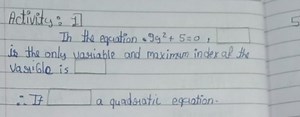 Activity: 1
In the equation .9y² + 5 = 0,
is the only variable and maximum index of the
variable is
∴ It a quadratic equation.
5